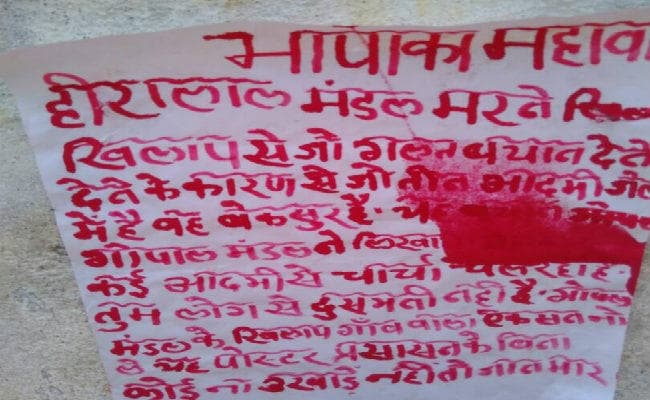 भापाका महावा
हीरालाल मंडल मरने खिल
खिलाप से जो गलत बयान देते
देतै के कारण से जो तीन आदमी जेल
में है वह बेकसुर है. यह
गोपाल मंडल ने लिखा
कई आदमी से चार्चा चल रहा है.
तुम लोग से दुसमनी नही है. गोपाल
मंडल के खिलाप गाँव वाला
व यह पोस्टर प्रसासन के बिना
कोई नो उखाड़े नहीं तो जान मोर